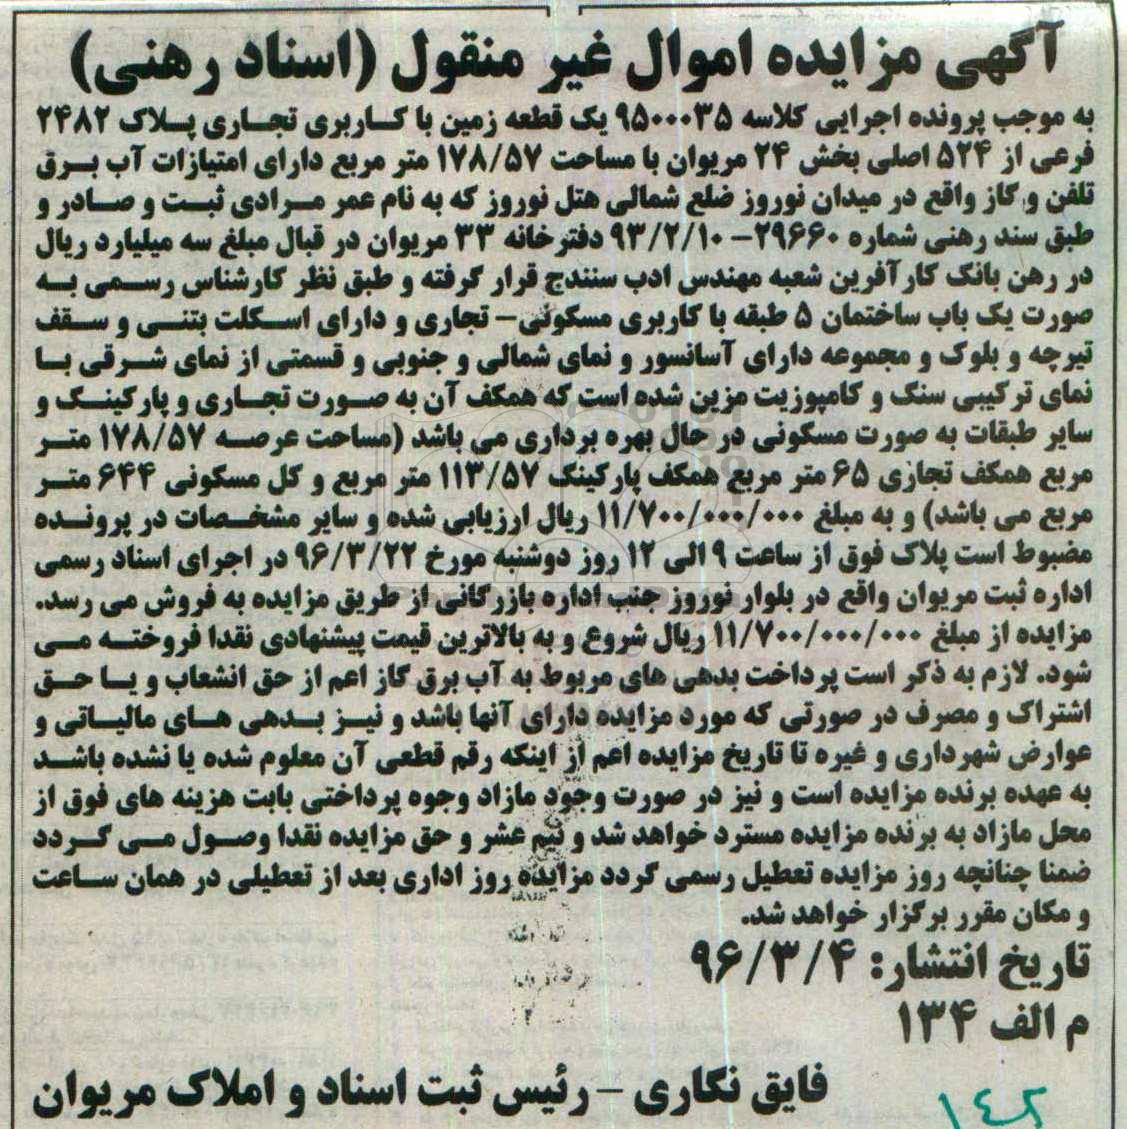 آگهی مزایده اموال غیر منقول (اسناد رهنی)
به موجب پرونده اجرایی کلاسه ۹۵۰۰۰۳۵ یک قطعه زمین با کاربری تجاری پلاک ۲۴۸۲
فرعی از ۵۲۴ اصلی بخش ۲۴ مریوان با مساحت ۱۷۸/۵۷ متر مربع دارای امتیازات آب برق
تلفن و گاز واقع در میدان نوروز ضلع شمالی هتل نوروز که به نام عمر مرادی ثبت و صادر و
طبق سند رهنی شماره ۲۹۶۶۰–۹۳/۲/۱۰ دفترخانه ۳۳ مریوان در قبال مبلغ سه میلیارد ریال
در رهن بانک کارآفرین شعبه مهندس ادب سنندج قرار گرفته و طبق نظر کارشناس رسمی به
صورت یک باب ساختمان ۵ طبقه با کاربری مسکونی– تجاری و دارای اسکلت بتنی و سقف
تیرچه و بلوک و مجموعه دارای آسانسور و نمای شمالی و جنوبی و قسمتی از نمای شرقی با
نمای ترکیبی سنگ و کامپوزیت مزین شده است که همکف آن به صورت تجاری و پارکینگ و
سایر طبقات به صورت مسکونی در حال بهره برداری می باشد (مساحت عرصه ۱۷۸/۵۷ متر
مربع همکف تجاری ۶۵ متر مربع همکف پارکینگ ۱۱۳/۵۷ متر مربع و کل مسکونی ۶۴۴ متر
مربع می باشد) و به مبلغ ۱۱/۷۰۰/۰۰۰/۰۰۰ ریال ارزیابی شده و سایر مشخصات در پرونده
مضبوط است پلاک فوق از ساعت ۹ الی ۱۲ روز دوشنبه مورخ ۹۶/۳/۲۲ در اجرای اسناد رسمی
اداره ثبت مریوان واقع در بلوار نوروز جنب اداره بازرگانی از طریق مزایده به فروش می رسد.
مزایده از مبلغ ۱۱/۷۰۰/۰۰۰/۰۰۰ ریال شروع و به بالاترین قیمت پیشنهادی نقدا فروخته می
شود. لازم به ذکر است پرداخت بدهی های مربوط به آب برق گاز اعم از حق انشعاب و یا حق
اشتراک و مصرف در صورتی که مورد مزایده دارای آنها باشد و نیز بدهی های مالیاتی و
عوارض شهرداری و غیره تا تاریخ مزایده اعم از اینکه رقم قطعی آن معلوم شده یا نشده باشد
به عهده برنده مزایده است و نیز در صورت وجود مازاد وجوه پرداختی بابت هزینه های فوق از
محل مازاد به برنده مزایده مسترد خواهد شد و نیم عشر و حق مزایده نقدا وصول می گردد
ضمنا چنانچه روز مزایده تعطیل رسمی گردد مزایده روز اداری بعد از تعطیلی در همان ساعت
و مکان مقرر برگزار خواهد شد.
تاریخ انتشار: ۹۶/۳/۴
م الف ۱۳۴
فایق نگاری – رئیس ثبت اسناد و املاک مریوان